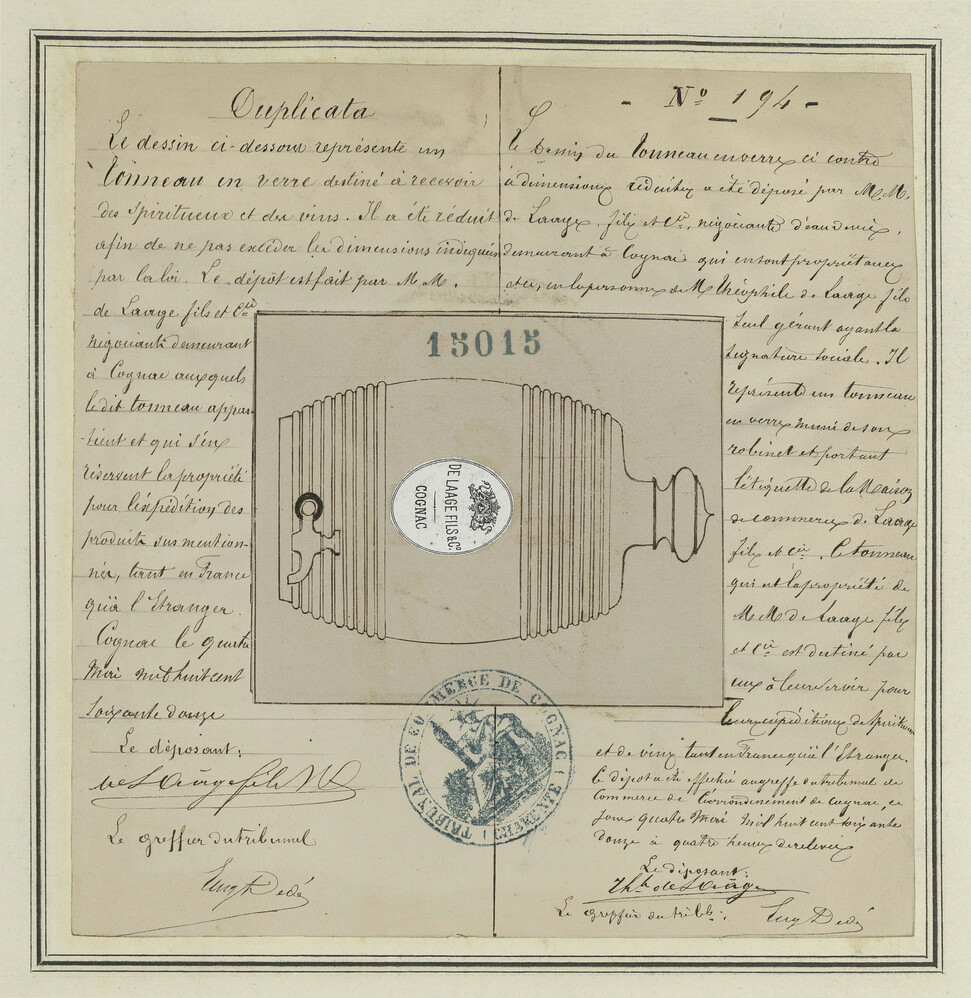 Duplicata
Le dessin ci-dessous représente un
tonneau en verre destiné à recevoir
des spiritueux et des vins. Il a été réduit
afin de ne pas excéder les dimensions indiquées
par la loi. Le dépôt est fait par M M.
de Laage fils et Cie
négociants demeurant
à Cognac auxquels
le dit tonneau appar-
tient et qui s'en
réservent la propriété
pour l'expédition des
produits sus mention-
nés, tant en France
qu'à l'Etranger.
Cognac le quatre
Mai mil huit cent
soixante douze
Le déposant:
de Laage fils & Co
Le greffier du tribunal
Eug Dedé
- No 194 -
Le dessin du tonneau en verre ci contre
à dimensions réduites a été déposé par M. M.
de Laage fils et Cie, négociants d'eau de vie,
demeurant à Cognac qui en sont propriétaires
et ce, en la personne de M Théophile de Laage fils
seul gérant ayant la
signature sociale. Il
représente un tonneau
en verre muni de son
robinet et portant
l'étiquette de la Maison
de commerce de Laage
fils et Cie. Ce tonneau
qui est la propriété de
M M de Laage fils
et Cie est destiné par
eux à leur servir pour
leurs expéditions de spiritueux
et de vins tant en France qu'à l'Etranger.
Ce dépôt a été effectué au greffe du tribunal de
Commerce de l'arrondissement de Cognac, ce
jour quatre Mai mil huit cent soixante
douze à quatre heures de relevée
Le déposant:
Thle de Laage
Le greffier du tribl:
Eug Dedé
15015
DE LAAGE FILS & Co.
COGNAC
TRIBUNAL DE COMMERCE DE COGNAC (CHARENTE)